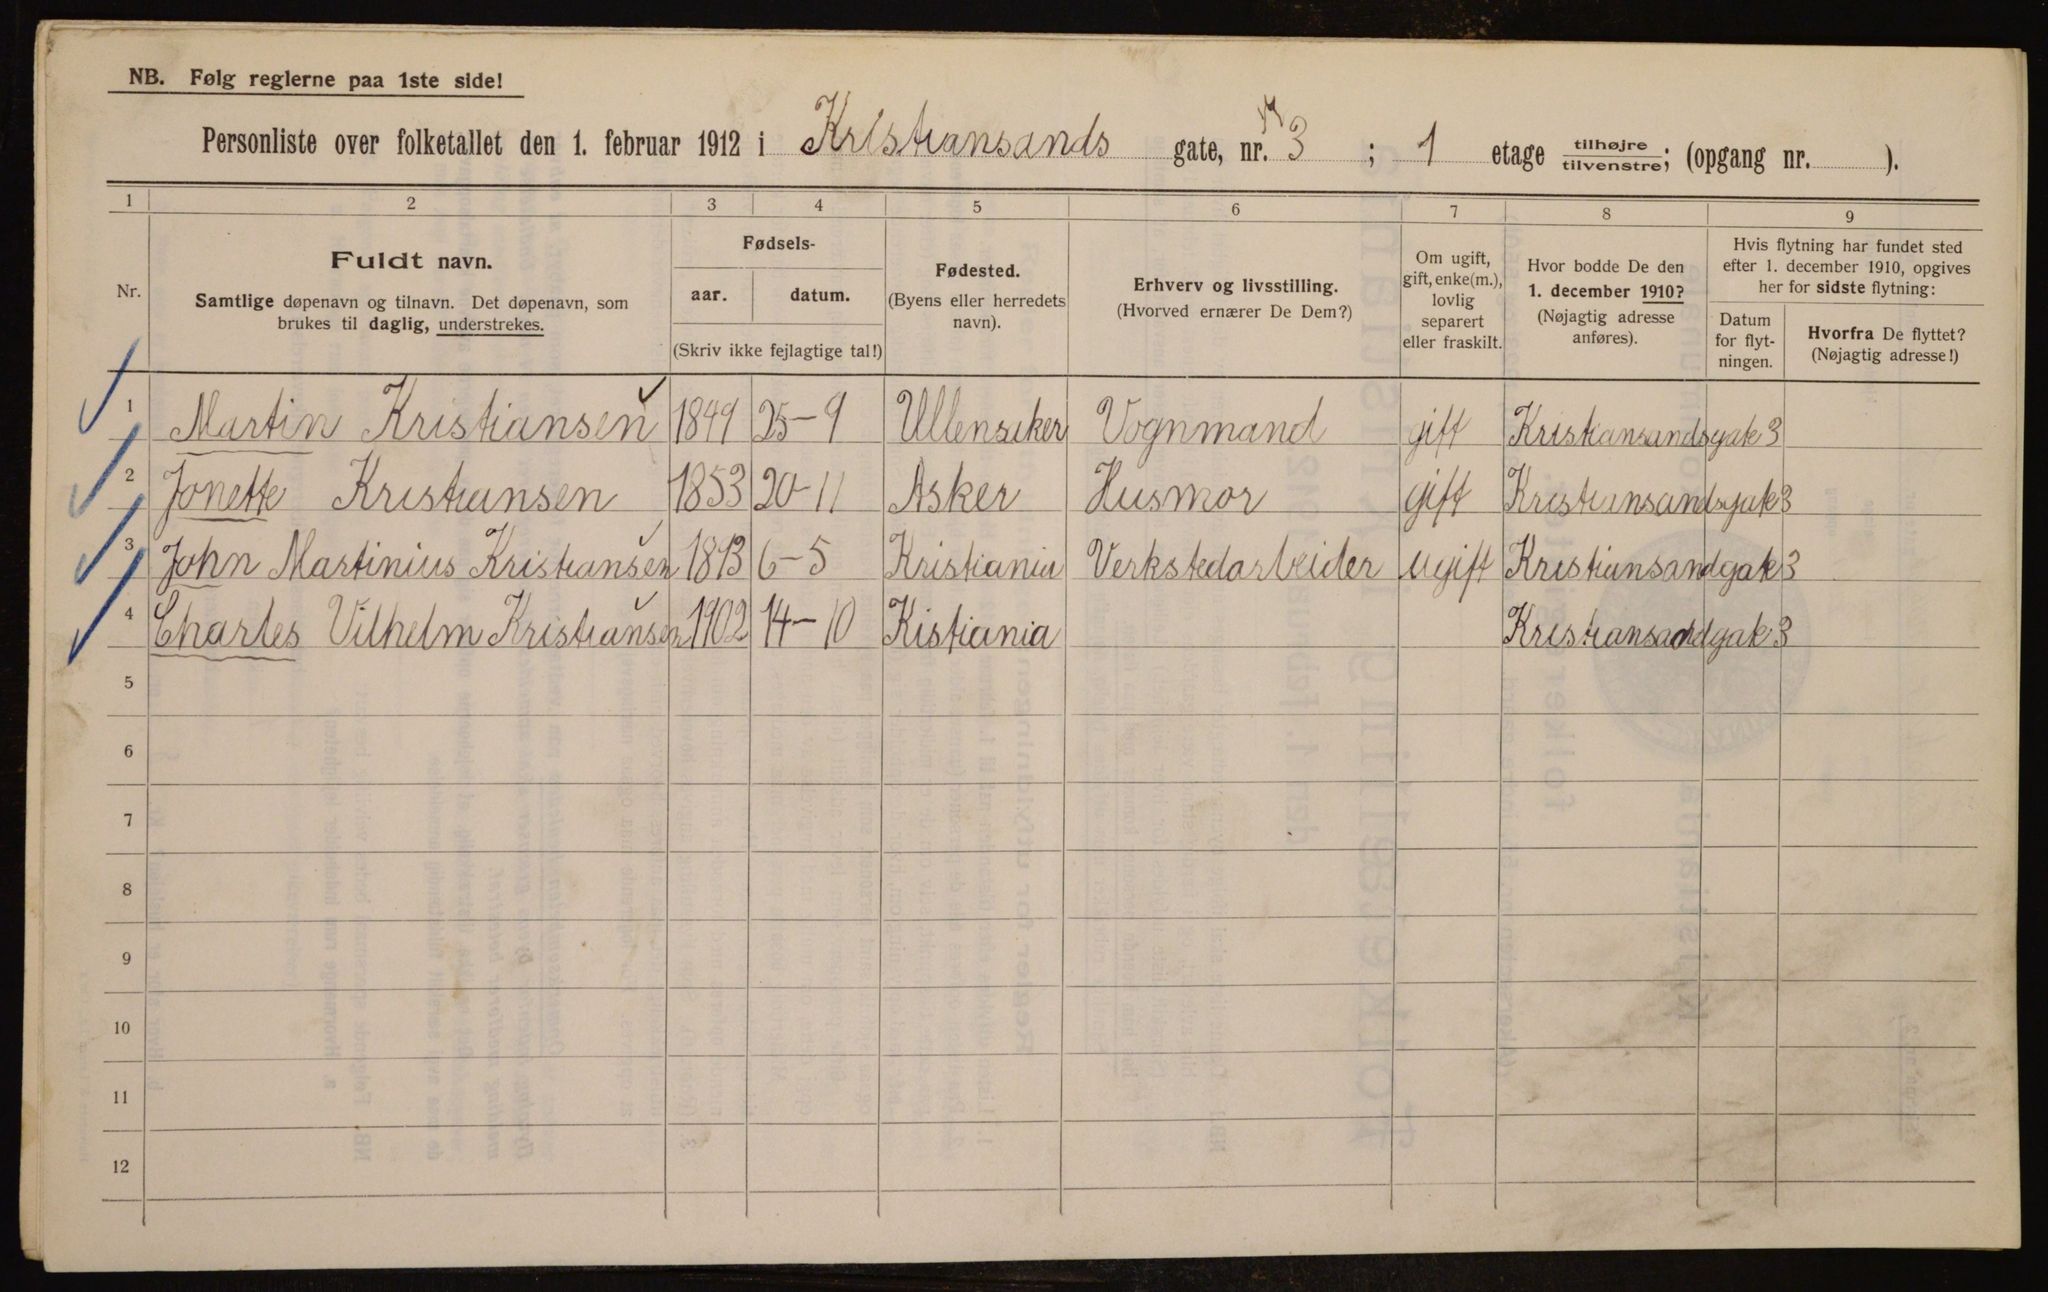 NB. Følg reglerne paa 1ste side!
Personliste over folketallet den 1. februar 1912 i Kristiansands gate, nr. 3 ; 1 etage tilhøjre/tilvenstre; (opgang nr. ).
1 2 3 4 5 6 7 8 9
Nr.
Fuldt navn.
Samtlige døpenavn og tilnavn. Det døpenavn, som
brukes til daglig, understrekes.
Fødsels-
aar. datum.
(Skriv ikke fejlagtige tal!)
Fødested.
(Byens eller herredets
navn).
Erhverv og livsstilling.
(Hvorved ernærer De Dem?)
Om ugift,
gift, enke(m.),
lovlig
separert
eller fraskilt.
Hvor bodde De den
1. december 1910?
(Nøjagtig adresse
anføres).
Hvis flytning har fundet sted
efter 1. december 1910, opgives
her for sidste flytning:
Datum
for flyt-
ningen.
Hvorfra De flyttet?
(Nøjagtig adresse!)
1 Martin Kristiansen 1849 25-9 Ullensaker Vognmand gift Kristiansandsgate 3
2 Jonette Kristiansen 1853 20-11 Asker Husmor gift Kristiansandsgate 3
3 John Martinius Kristiansen 6-5 Kristiania Verkstedarbeider ugift Kristiansandgate 3
4 Charles Vilhelm Kristiansen 1902 14-10 Kistiania Kristiansandgate 3
5
6
7
8
9
10
11
12